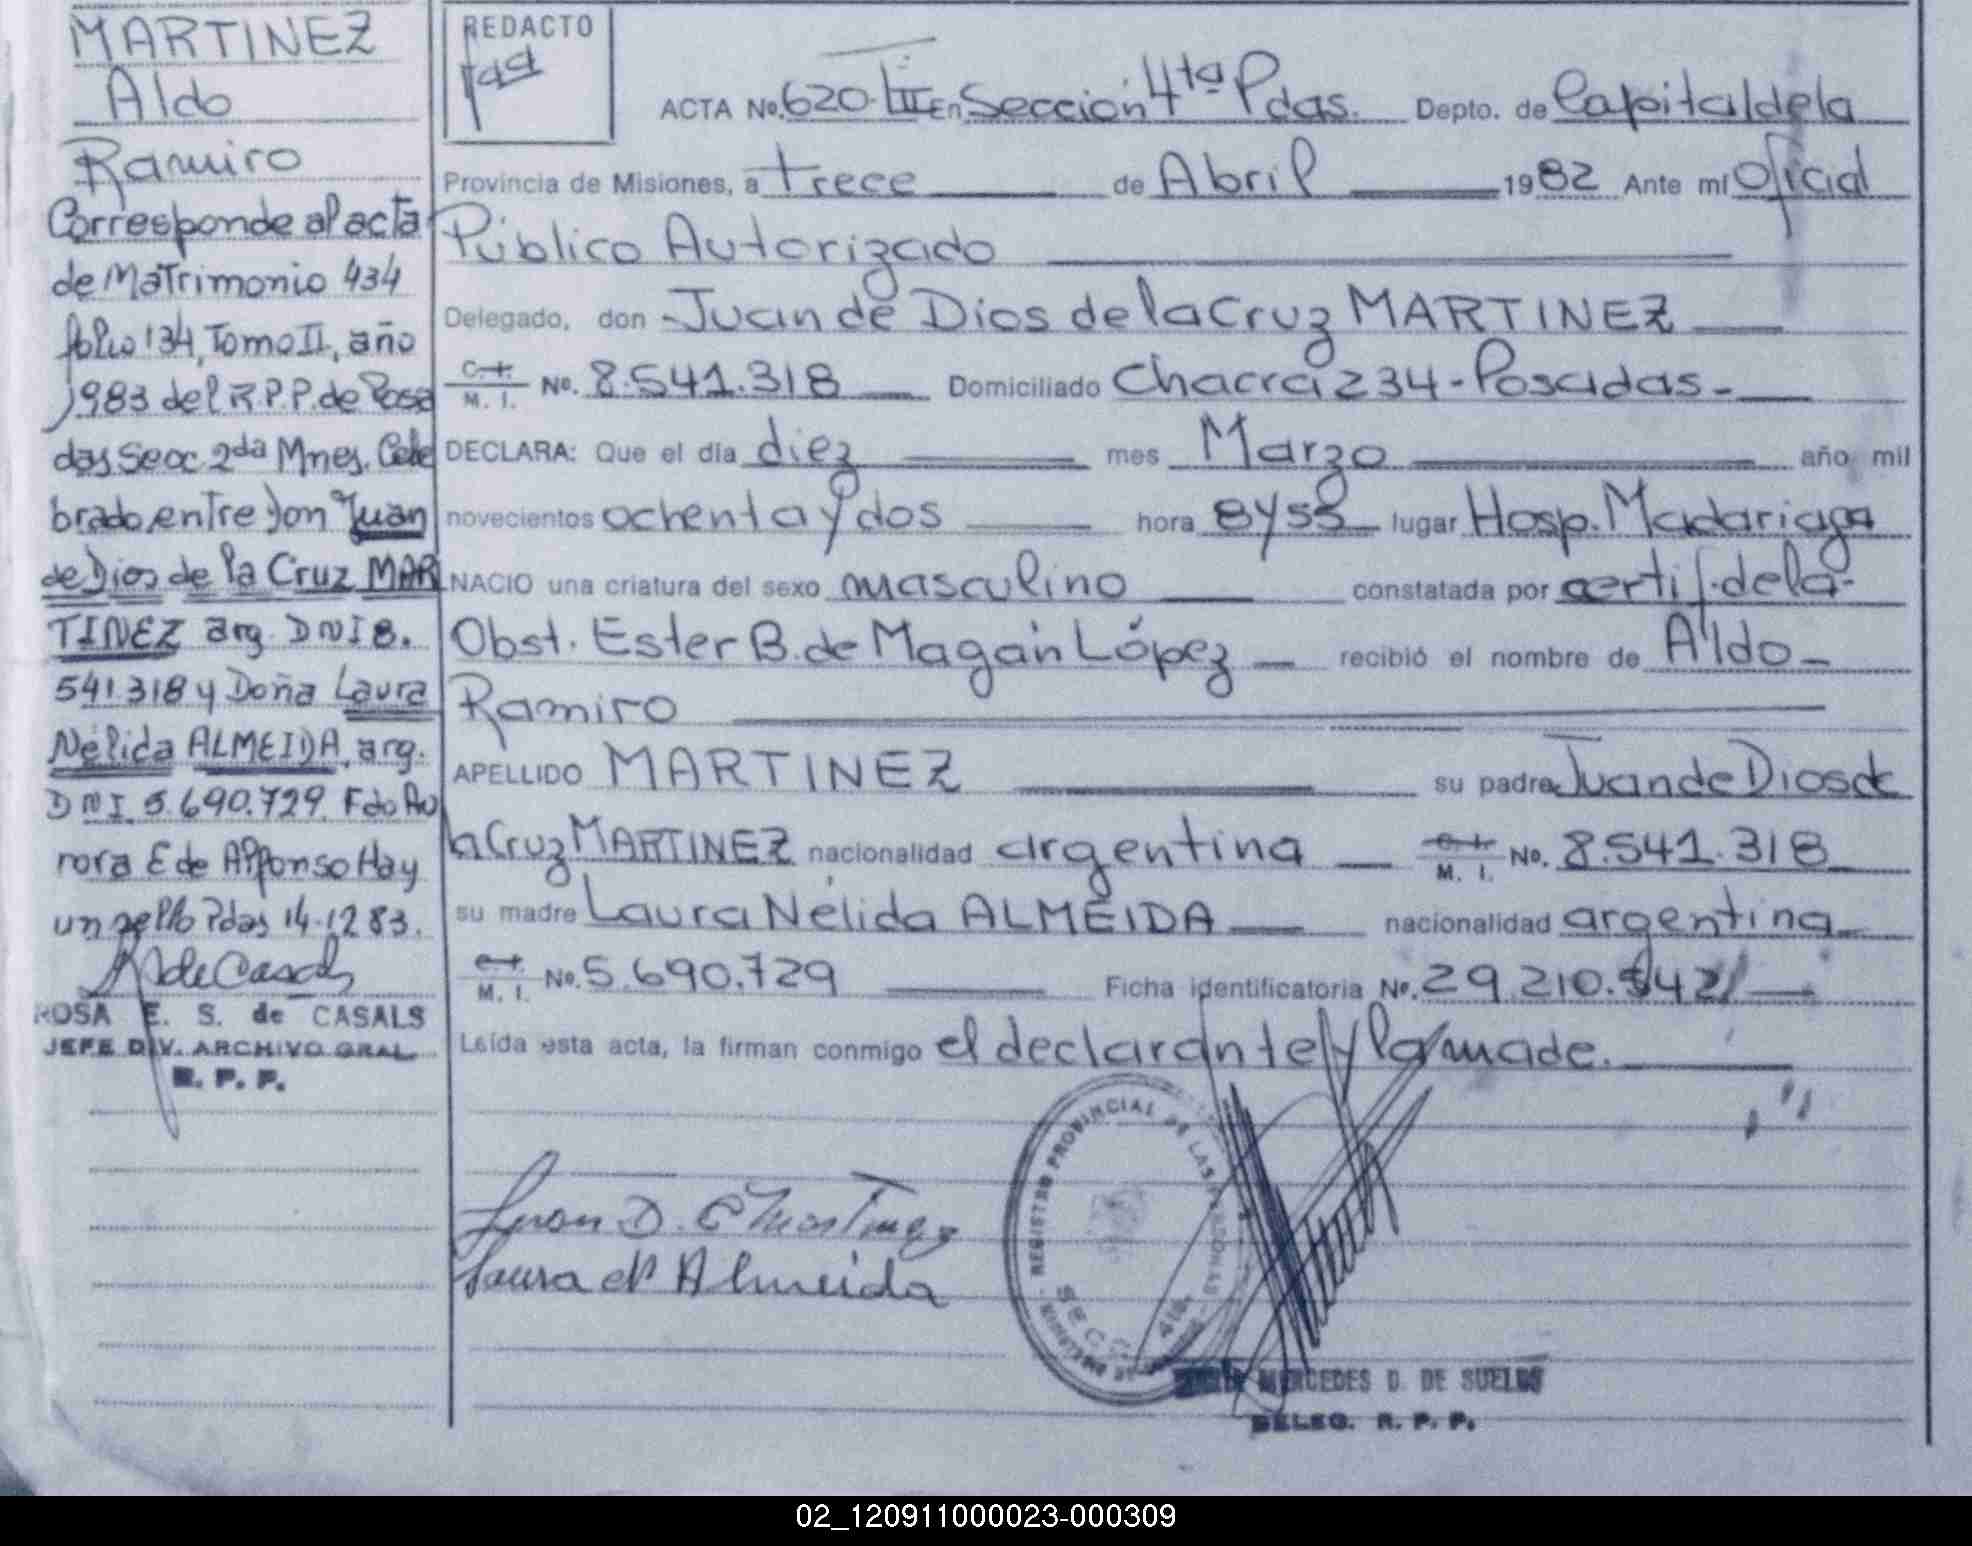 MARTINEZ
Aldo
Ramiro
Corresponde al acta
de Matrimonio 434
folio 134, Tomo II, año
1983 del R.P.P. de Posa
das Secc 2da Mnes. Cele
brado, entre Don Juan
de Dios de la Cruz MAR
TINEZ arg. DNI 8.
541.318 y Doña Laura
Nélida ALMEIDA, arg.
DNI. 5.690.729. Fdo Au
rora E de Alfonso Hay
un sello Pdas 14.12 83.
ROSA E. S. de CASALS
JEFE DIV. ARCHIVO GRAL.
R. P. P.
REDACTO
ACTA No. 620-III En Sección 4ta Pdas. Depto. de Capital de la
Provincia de Misiones, a trece de Abril 1982 Ante mí Oficial
Público Autorizado
Delegado, don Juan de Dios de la Cruz MARTINEZ
C. I. M. I. No. 8.541.318 Domiciliado Chacra 234-Posadas-
DECLARA: Que el día diez mes Marzo año mil
novecientos ochenta y dos hora 8 y 55 lugar Hosp. Madariaga
NACIO una criatura del sexo masculino constatada por certif. de la-
Obst. Ester B. de Magán López recibió el nombre de Aldo-
Ramiro
APELLIDO MARTINEZ su padre Juan de Dios de
la Cruz MARTINEZ nacionalidad argentina C. I. M. I. No. 8.541.318
su madre Laura Nélida ALMEIDA nacionalidad argentina
C. I. M. I. No. 5.690.729 Ficha identificatoria No. 29.210.542
Leída esta acta, la firman conmigo el declarante y la made.
Juan D. C Martinez
Laura N Almeida
REGISTRO PROVINCIAL DE LAS PERSONAS
SECC. 4ta.
MERCEDES D. DE SUELDO
DELEG. R. P. P.
02_120911000023-000309